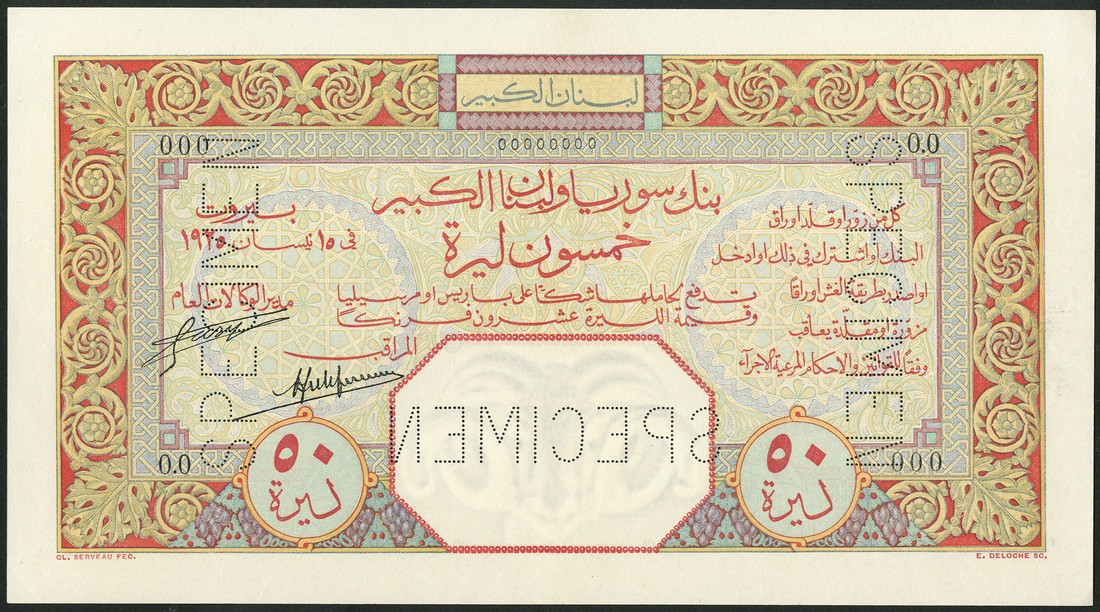 لبنان الكبير
000
00000000
0.0
بنك سوريا ولبنان الكبير
خمسون ليرة
بيروت
في ١٥ نيسان ١٩٢٥
تدفع لحاملها شكًا على باريس او مرسيليا
وقيمة الليرة عشرون فرنكًا
مدير الوكالات العام
المراقب
كل من زور او قلد اوراق
البنك او اشترك في ذلك او ادخل
او اصدر بطريقة الغش اوراقا
مزورة او مقلدة يعاقب
وفقًا للقوانين والاحكام المرعية الاجراء
SPECIMEN
SPECIMEN
SPECIMEN
0.0
٥٠
ليرة
٥٠
ليرة
000
CL. SERVEAU FEC.
E. DELOCHE SC.